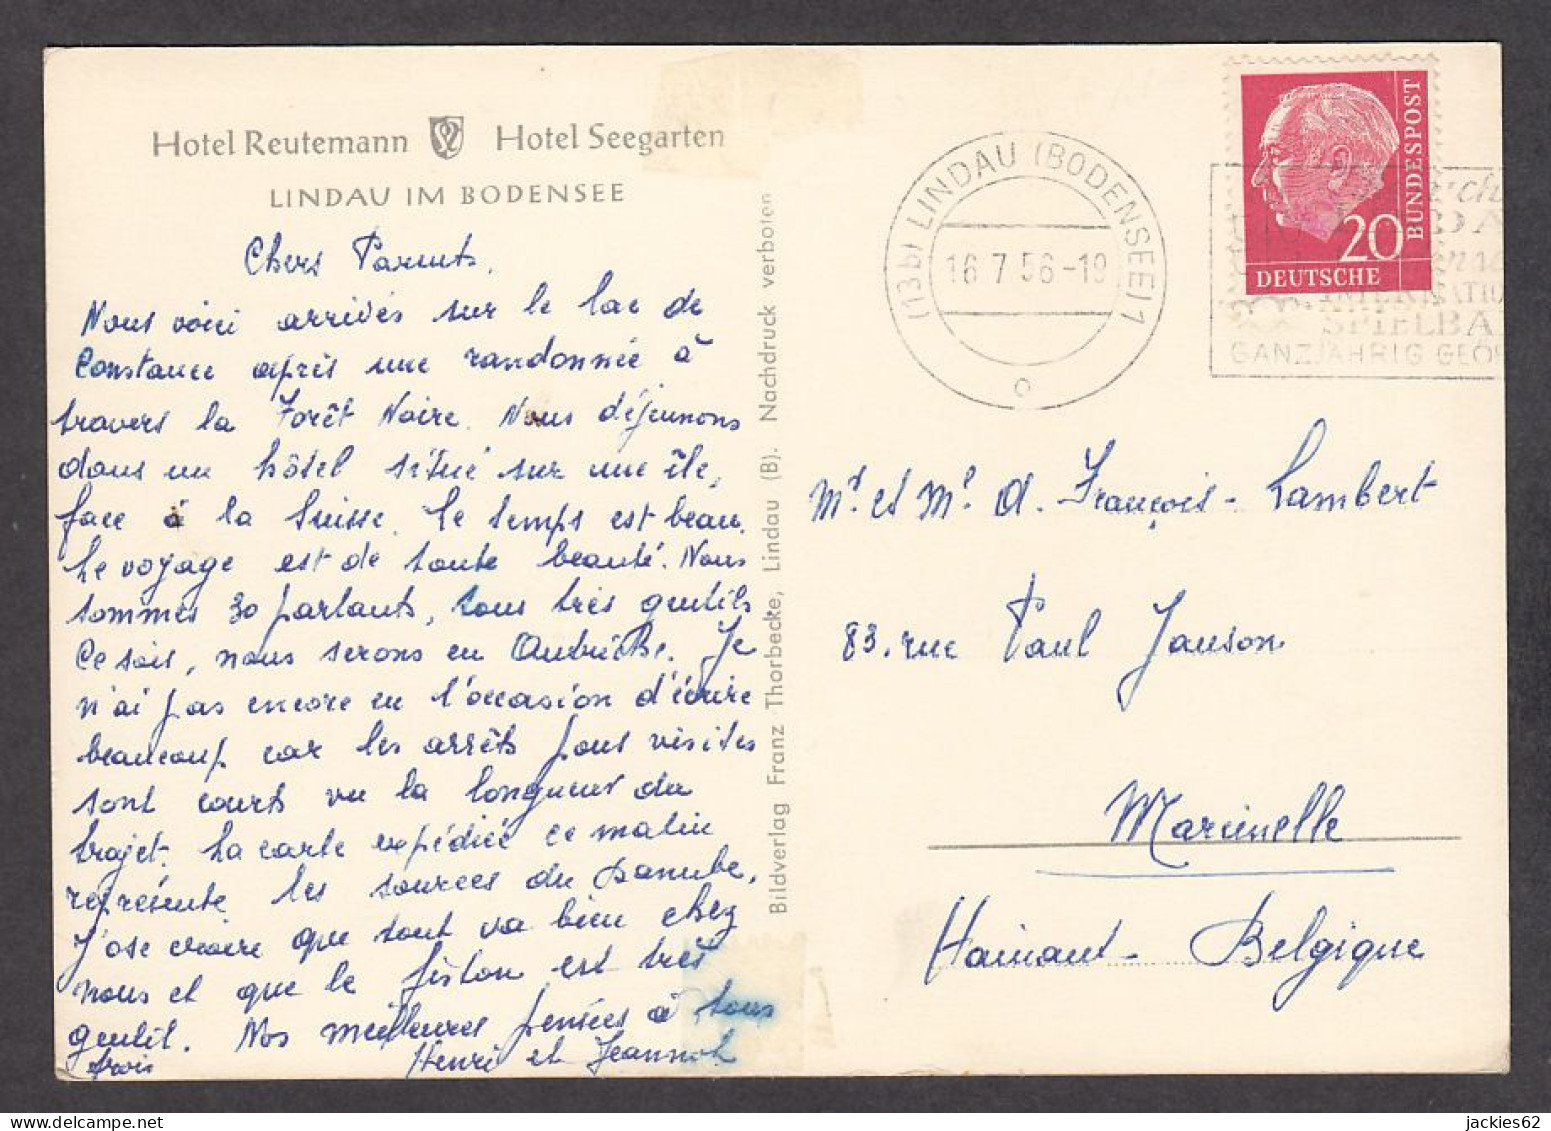 Hotel Reutemann Hotel Seegarten
LINDAU IM BODENSEE
Chers Parents,
Nous voici arrivés sur le lac de
Constance après une randonnée à
travers la Forêt Noire. Nous déjeunons
dans un hôtel situé sur une île,
face à la Suisse. Le temps est beau.
Le voyage est de toute beauté. Nous
sommes 30 partants, tous très gentils
Ce soir, nous serons en Autriche. Je
n'ai pas encore eu l'occasion d'écrire
beaucoup car les arrêts pour visites
sont courts vu la longueur du
trajet. La carte expédiée ce matin
représente les sources du Danube.
J'ose croire que tout va bien chez
nous et que le fiston est très
gentil. Nos meilleures pensées à tous
trois Henri et Jeannot
Bildverlag Franz Thorbecke, Lindau (B). Nachdruck verboten
(13b) LINDAU (BODENSEE) 1
16.7.56-19
o
20
DEUTSCHE
BUNDESPOST
INTERNATIO
SPIELBA
GANZJÄHRIG GEÖF
Mr et Me A. François-Lambert
83. rue Paul Janson
Marcinelle
Hainaut - Belgique
jackies62